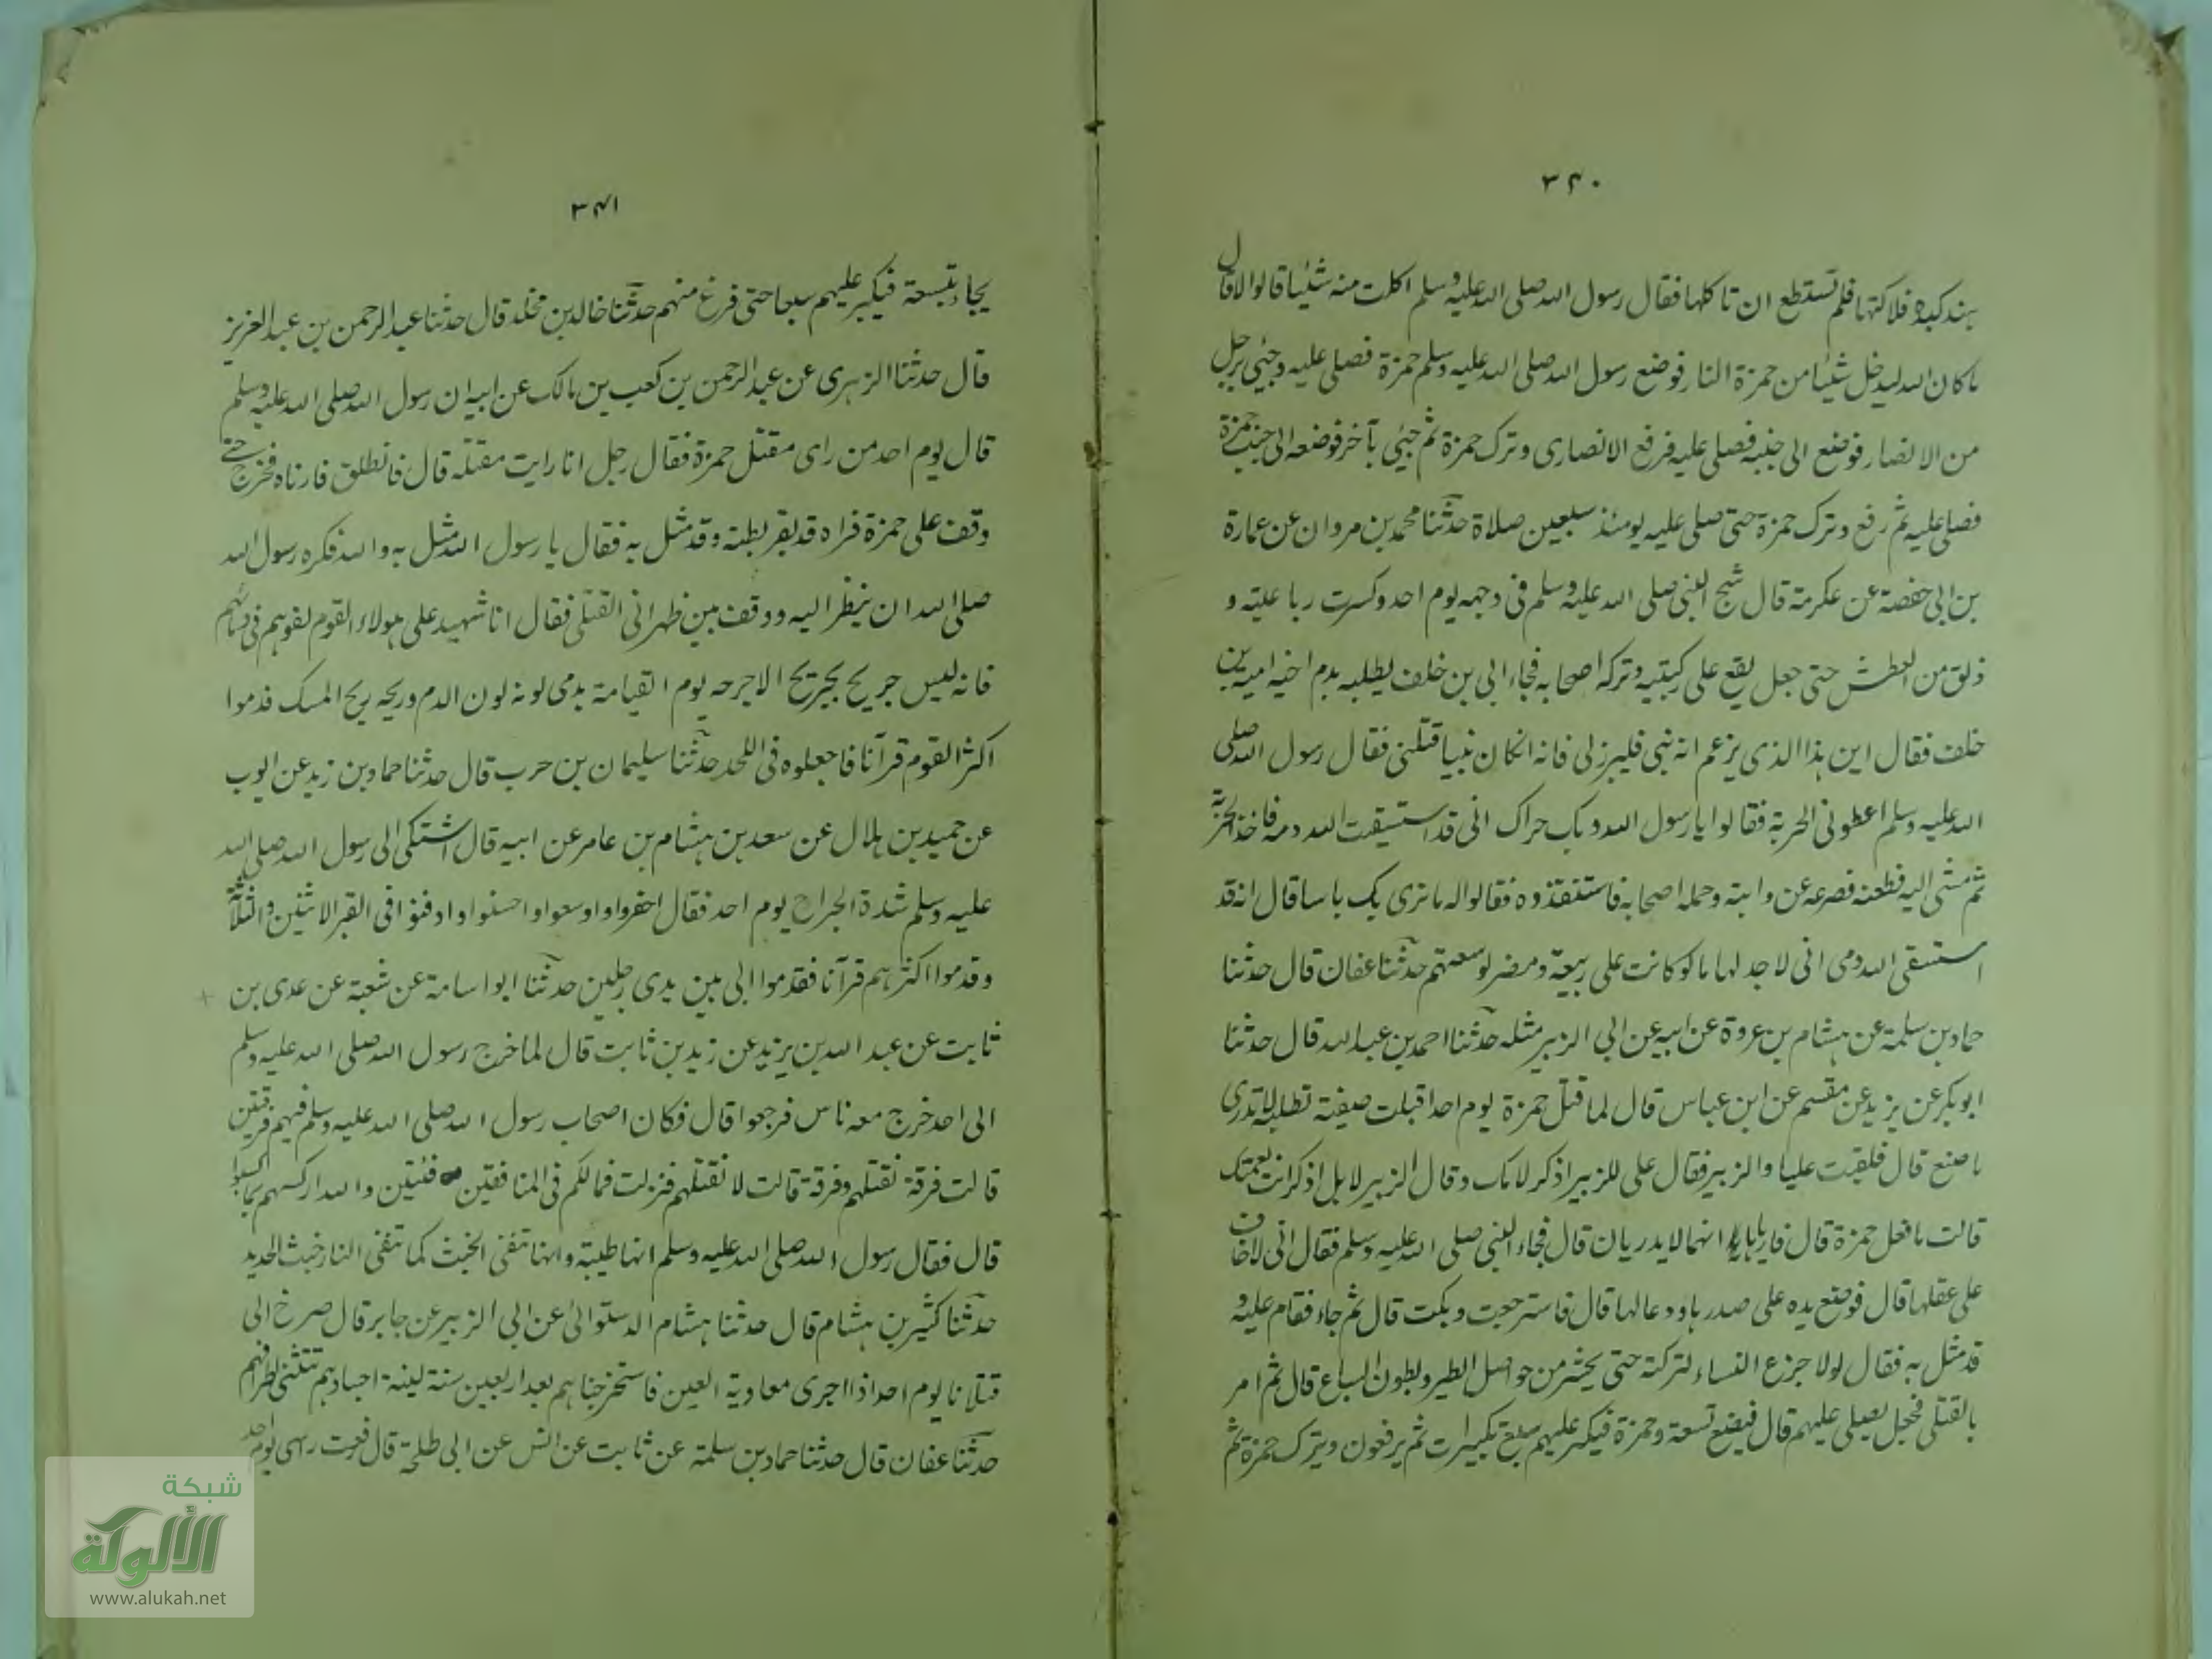 ٣٤٠
هند كبده فلاكتها فلم تستطع ان تاكلها فقال رسول الله صلى الله عليه وسلم اكلت منه شئيا قالوا لا قال
ما كان الله ليدخل شئيا من حمزة النار فوضع رسول الله صلى الله عليه وسلم حمزة فصلى عليه وجئي برجل
من الانصار فوضع الى جنبه فصلى عليه فرفع الانصارى وترك حمزة ثم جئى بآخر فوضعه الى جنب حمزة
فصلى عليه ثم رفع وترك حمزة حتى صلى عليه يومئذ سبعين صلاة حدثنا محمد بن مروان عن عمارة
بن ابى حفصة عن عكرمة قال شج النبى صلى الله عليه وسلم فى وجهه يوم احد وكسرت رباعيته و
ذلق من العطش حتى جعل يقع على ركبتيه وتركه اصحابه فجاء ابى بن خلف يطلبه بدم اخيه امية بن
خلف فقال اين هذا الذى يزعم انه نبى فليبرزلى فانه انكان نبيا قتلنى فقال رسول الله صلى
الله عليه وسلم اعطونى الحربة فقالوا يا رسول الله وبك حراك انى قد استسقيت الله دمه فاخذ الحربة
ثم مشى اليه فطعنه فصرعه عن دابته وحمله اصحابه فاستنقذوه فقالوا له ما نرى بك باسا قال انه قد
استسقى الله دمى انى لاجد لها ما لو كانت على ربيعة ومضر لوسعتهم حدثنا عفان قال حدثنا
حماد بن سلمة عن هشام بن عروة عن ابيه عن ابى الزبير مثله حدثنا احمد بن عبد الله قال حدثنا
ابو بكر عن يزيد عن مقسم عن ابن عباس قال لما قتل حمزة يوم احد اقبلت صفية تطلبه لا تدرى
ما صنع قال فلقيت عليا والزبير فقال على للزبير اذكر لامك وقال الزبير لا بل اذكر انت لعمتك
قالت ما فعل حمزة قال فارياها انهما لا يدريان قال فجاء النبى صلى الله عليه وسلم فقال انى لاخاف
على عقلها قال فوضع يده على صدرها ودعا لها قال فاسترجعت وبكت قال ثم جاء فقام عليه و
قد مثل به فقال لولا جزع النساء لتركته حتى يحشر من حواصل الطير وبطون السباع قال ثم امر
بالقتلى فجعل يصلى عليهم قال فيضع تسعة وحمزة فيكبر عليهم سبع تكبيرات ثم يرفعون ويترك حمزة ثم
٣٤١
يجاء بتسعة فيكبر عليهم سبعا حتى فرغ منهم حدثنا خالد بن مخلد قال حدثنا عبد الرحمن بن عبد العزيز
قال حدثنا الزهرى عن عبد الرحمن بن كعب بن مالك عن ابيه ان رسول الله صلى الله عليه وسلم
قال يوم احد من راى مقتل حمزة فقال رجل انا رايت مقتله قال فانطلق فارناه فخرج حتے
وقف على حمزة فراه قد بقر بطنه وقد مثل به فقال يا رسول الله مثل به والله فكره رسول الله
صلى الله ان ينظر اليه ووقف بين ظهرانى القتلى فقال انا شهيد على هولاء القوم لفوهم فى دمائهم
فانه ليس جريح يجريح الا جرحه يوم القيامة يدمى لونه لون الدم وريحه ريح المسك قدموا
اكثر القوم قرآنا فاجعلوه فى اللحد حدثنا سليمان بن حرب قال حدثنا حماد بن زيد عن ايوب
عن حميد بن هلال عن سعد بن هشام بن عامر عن ابيه قال اشتكى الى رسول الله صلى الله
عليه وسلم شدة الجراح يوم احد فقال احفروا واوسعوا واحسنوا وادفنوا فى القبر الاثنين والثلاثة
وقدموا اكثرهم قرآنا فقدموا ابى بين يدى رجلين حدثنا ابو اسامة عن شعبة عن عدى بن
ثابت عن عبد الله بن يزيد عن زيد بن ثابت قال لما خرج رسول الله صلى الله عليه وسلم
الى احد خرج معه ناس فرجعوا قال فكان اصحاب رسول الله صلى الله عليه وسلم فيهم فرقتين
قالت فرقة نقتلهم وفرقة قالت لا نقتلهم فنزلت فمالكم فى المنافقين فئتين والله اركسهم بما كسبوا
قال فقال رسول الله صلى الله عليه وسلم انها طيبة وانها تنفى الخبث كما تنفى النار خبث الحديد
حدثنا كثير بن هشام قال حدثنا هشام الدستوائى عن ابى الزبير عن جابر قال صرخ الى
قتلانا يوم احد اذا اجرى معاوية العين فاستخرجناهم بعد اربعين سنة لينة اجسادهم تتثنى اطرافهم
حدثنا عفان قال حدثنا حماد بن سلمة عن ثابت عن انس عن ابى طلحة قال رفعت رسى يوم احد
شبكة
الألوكة
www.alukah.net